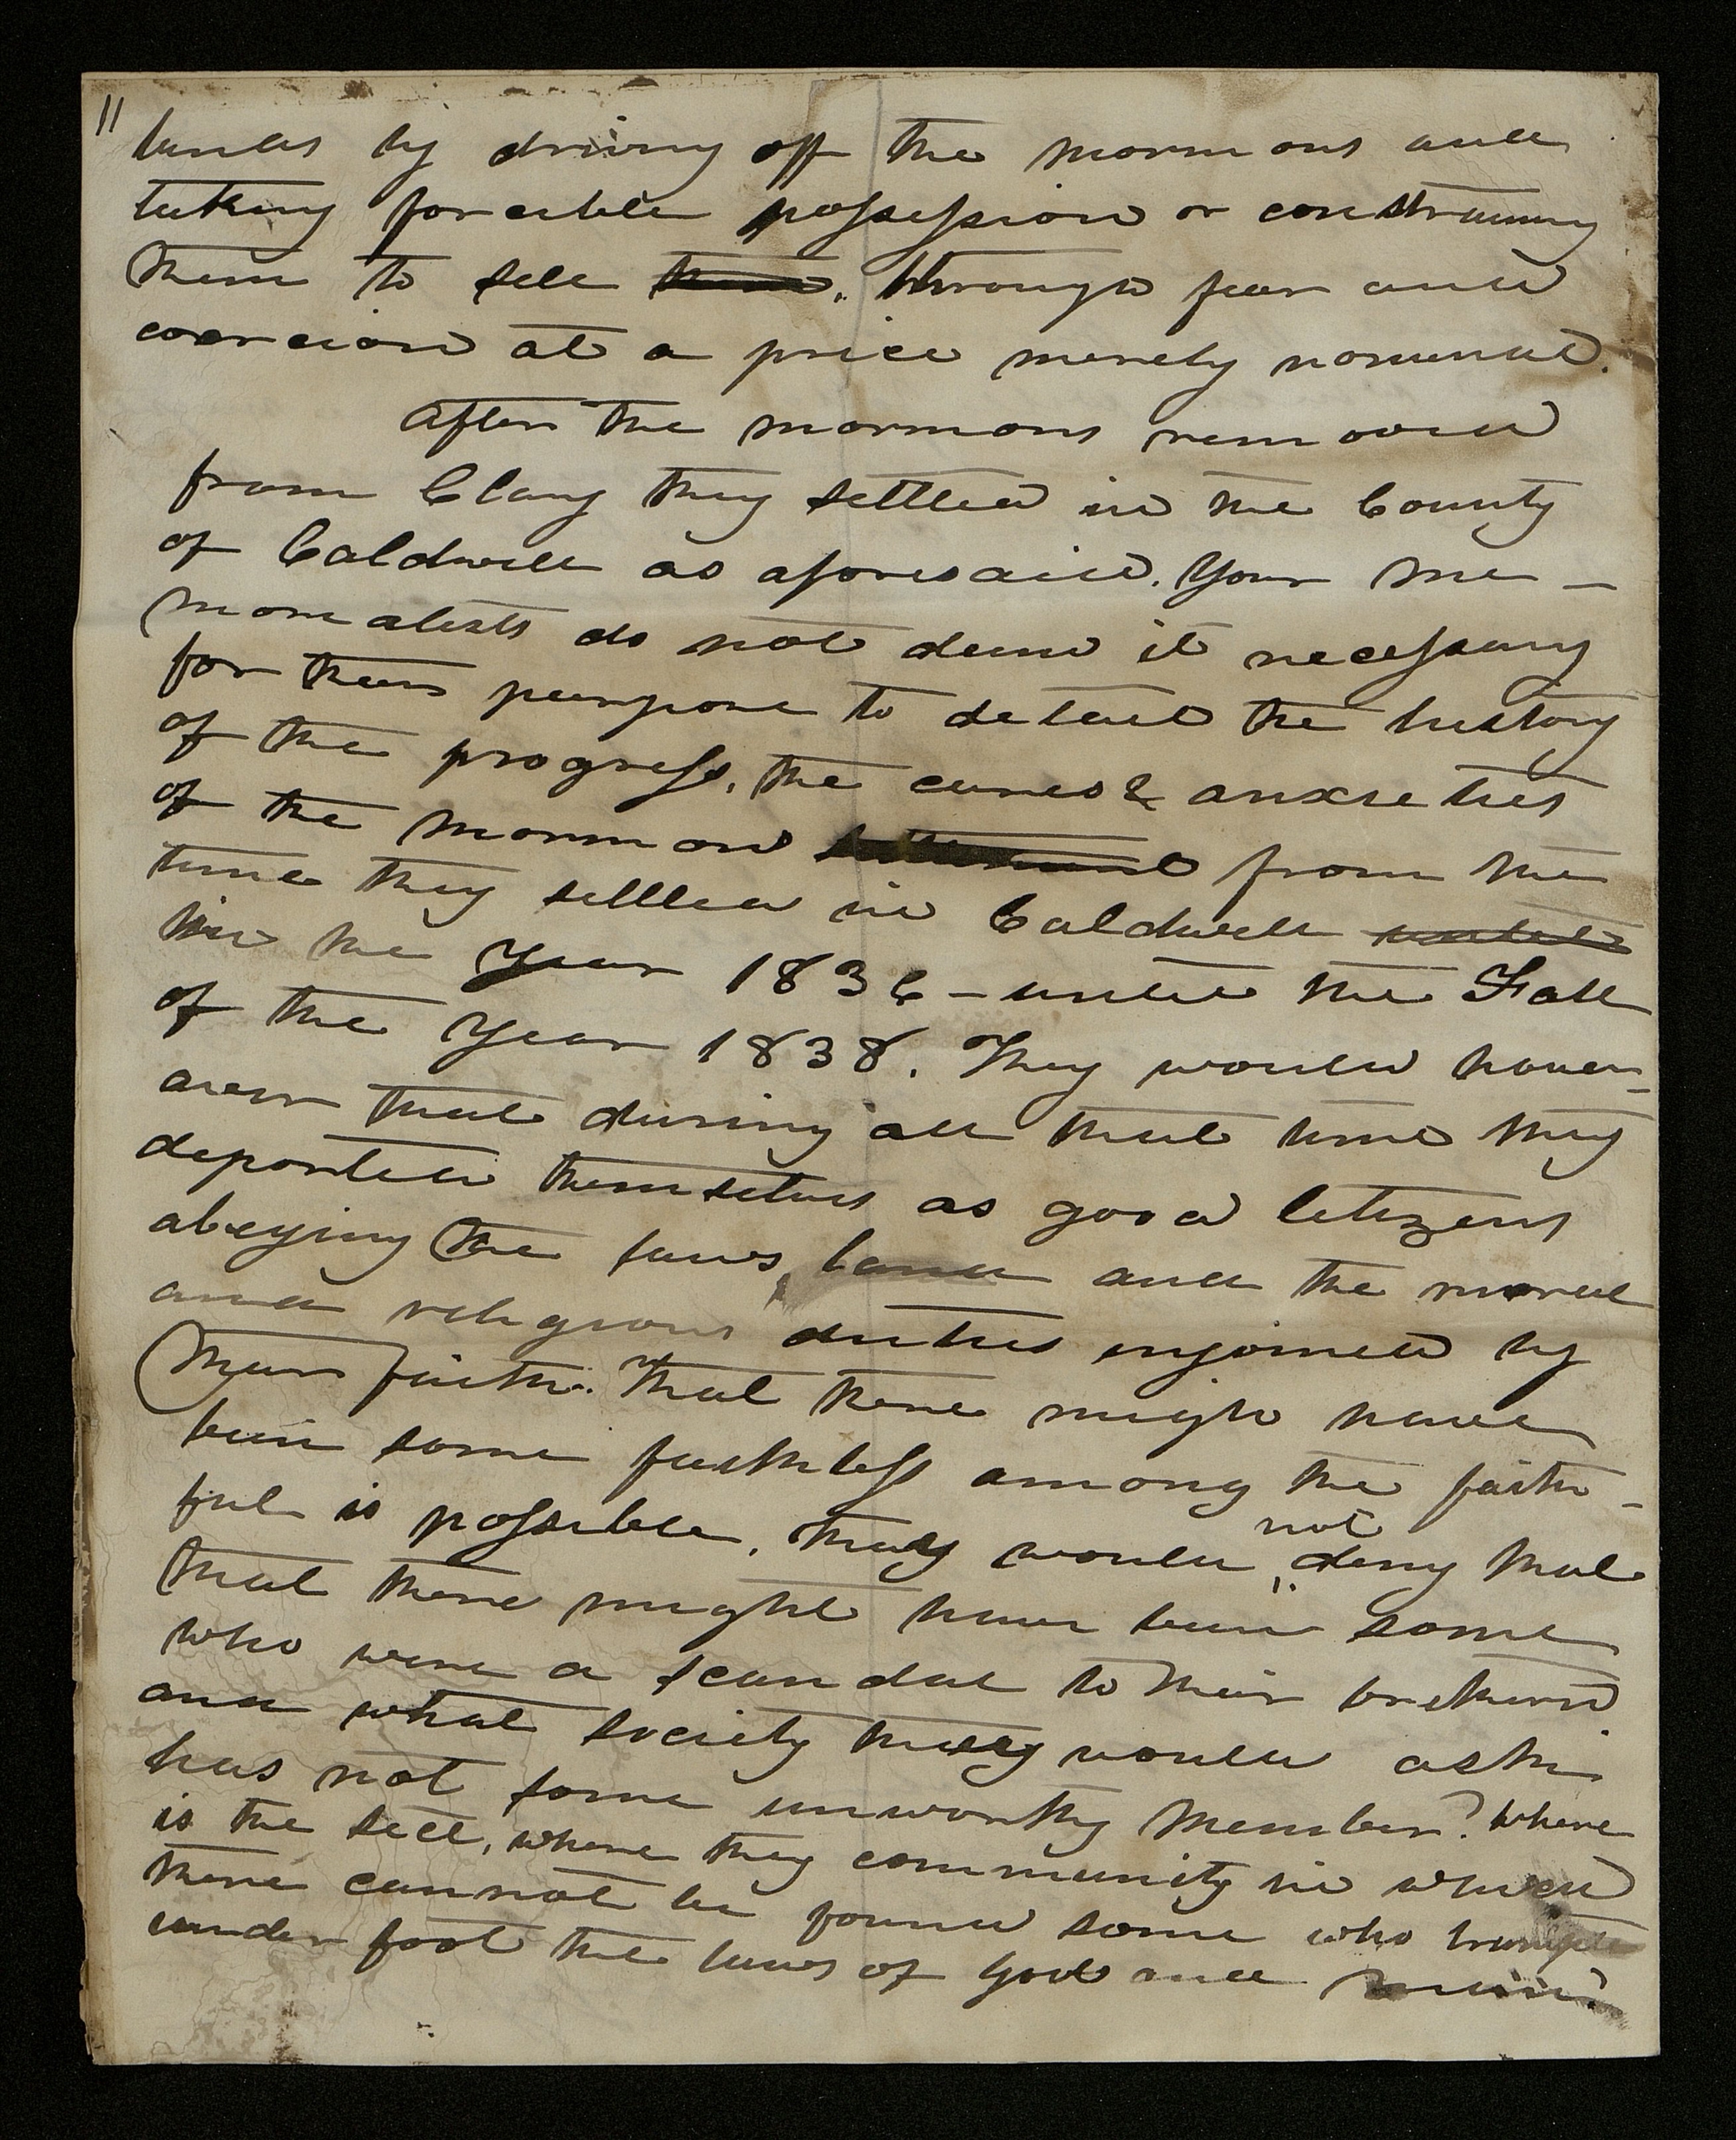 11
lands by driving off the mormons and
taking forcible possession or constraining
them to sell them, through fear and
coercion at a price merely nominal.
After the mormons removed
from Clay they settled in the County
of Caldwell as aforesaid. Your me-
morialists do not deem it necessary
for their purpose to detail the history
of the progress, the cares & anxieties
of the mormons settlement from the
time they settled in Caldwell until
in the Year 1836 - until the Fall
of the Year 1838. They would however
aver that during all that time they
deported themselves as good Citizens
obeying the laws, land and the moral
and religious duties enjoined by
their faith. That there migh have
been some faithless among the faith-
ful is possible. They would not deny that
that there might have been some
who were a scandal to their brethern
and what society they would ask
has not some unworthy Member? Where
is the sect, where they community in which
there cannot be found some who trample
under foot the laws of God and man?